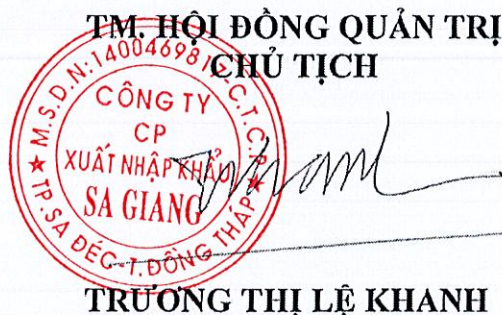 TM. HỘI ĐỒNG QUẢN TRỊ
CHỦ TỊCH
M.S.D.N: 14004698
C.T.C.P
CÔNG TY
CP
XUẤT NHẬP KHẨU
SA GIANG
TP. SA ĐÉC - T. ĐỒNG THÁP
TRƯƠNG THỊ LỆ KHANH